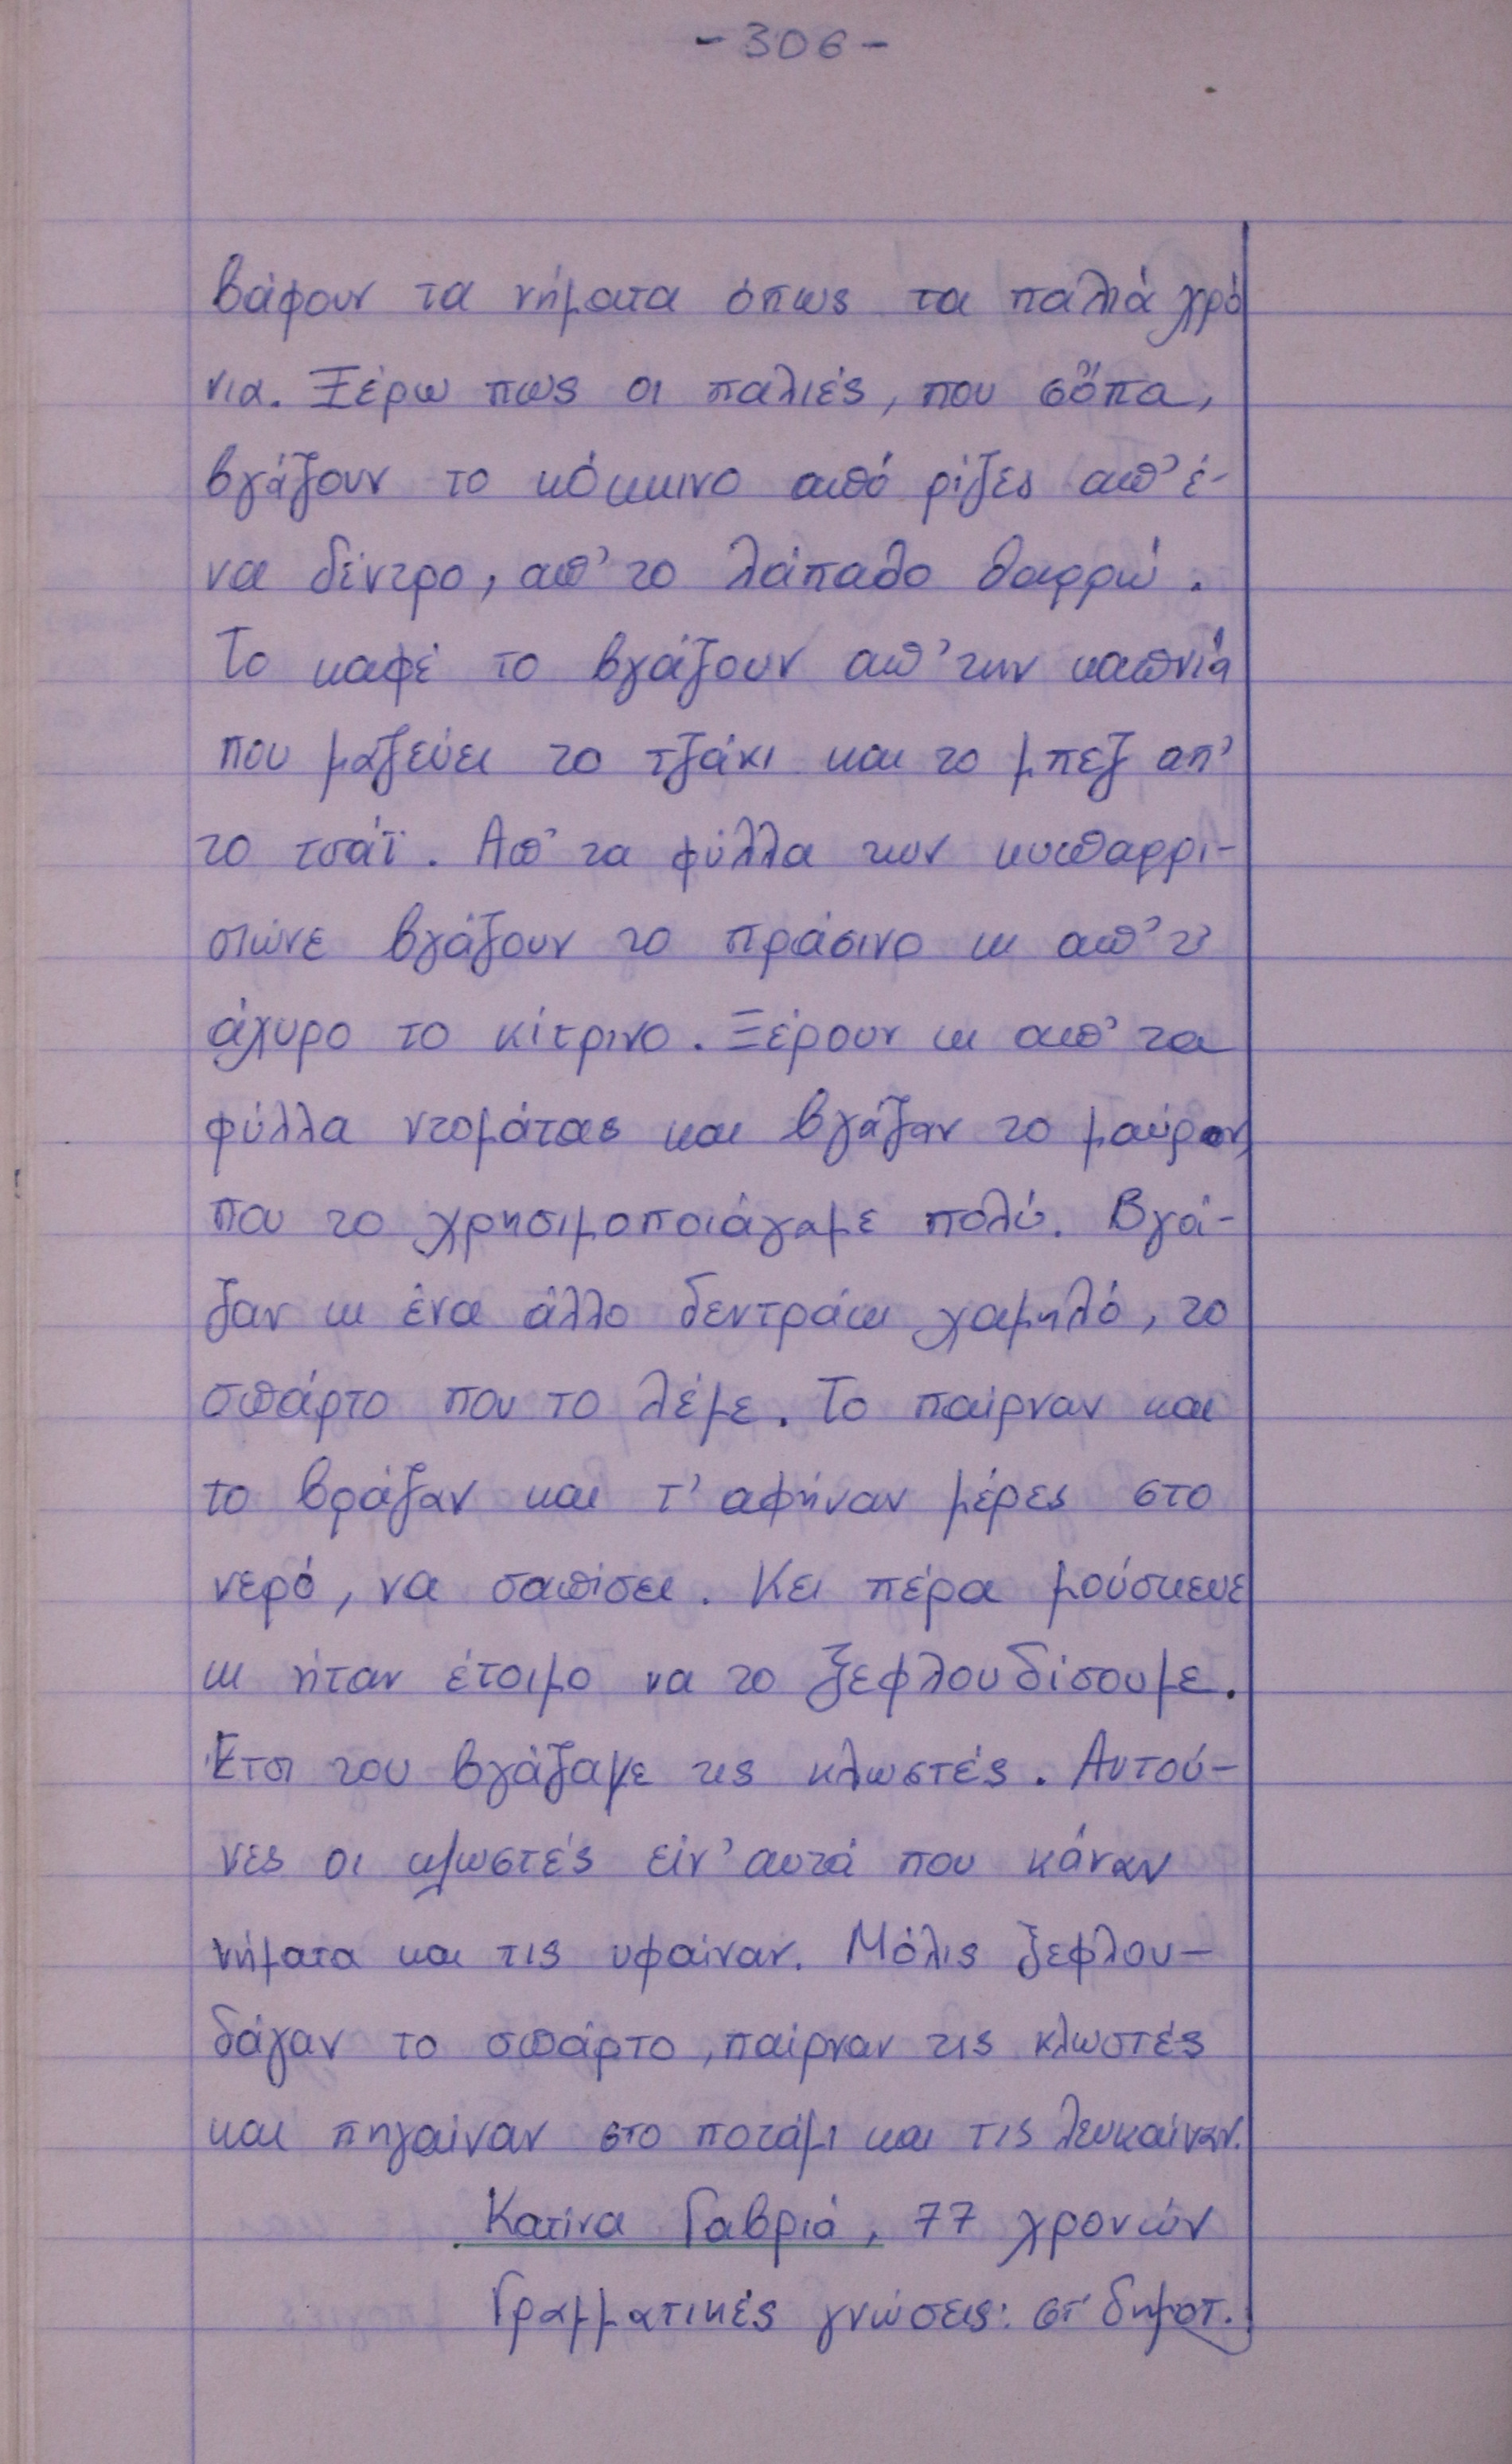 -306-
βάφουν τα νήματα όπως τα παλιά χρό
νια. Ξέρω πως οι παλιές, που σὄπα,
βγάζουν το κόκκινο από ρίζες απ' έ-
να δέντρο, απ' το λάπαθο θαρρώ.
Το καφέ το βγάζουν απ' την καπνιά
που μαζεύει το τζάκι και το μπεζ απ'
το τσάϊ. Απ' τα φύλλα των κυπαρρι-
σιώνε βγάζουν το πράσινο κι απ' τ'
άχυρο το κίτρινο. Ξέρουν κι απ' τα
φύλλα ντομάτας και βγάζαν το μαύρον,
που το χρησιμοποιάγαμε πολύ. Βγά-
ζαν κι ένα άλλο δεντράκι χαμηλό, το
σπάρτο που το λέμε. Το παίρναν και
το βράζαν και τ' αφήναν μέρες στο
νερό, να σαπίσει. Κει πέρα μούσκευε
κι ήταν έτοιμο να το ξεφλουδίσουμε.
Έτσι του βγάζαμε τις κλωστές. Αυτού-
νες οι κλωστές είν' αυτά που κάναν
νήματα και τις υφαίναν. Μόλις ξεφλου-
δάγαν το σπάρτο, παίρναν τις κλωστές
και πηγαίναν στο ποτάμι και τις λευκαίναν.
Κατίνα Γαβριά, 77 χρονών
Γραμματικές γνώσεις: στ' δημοτ.